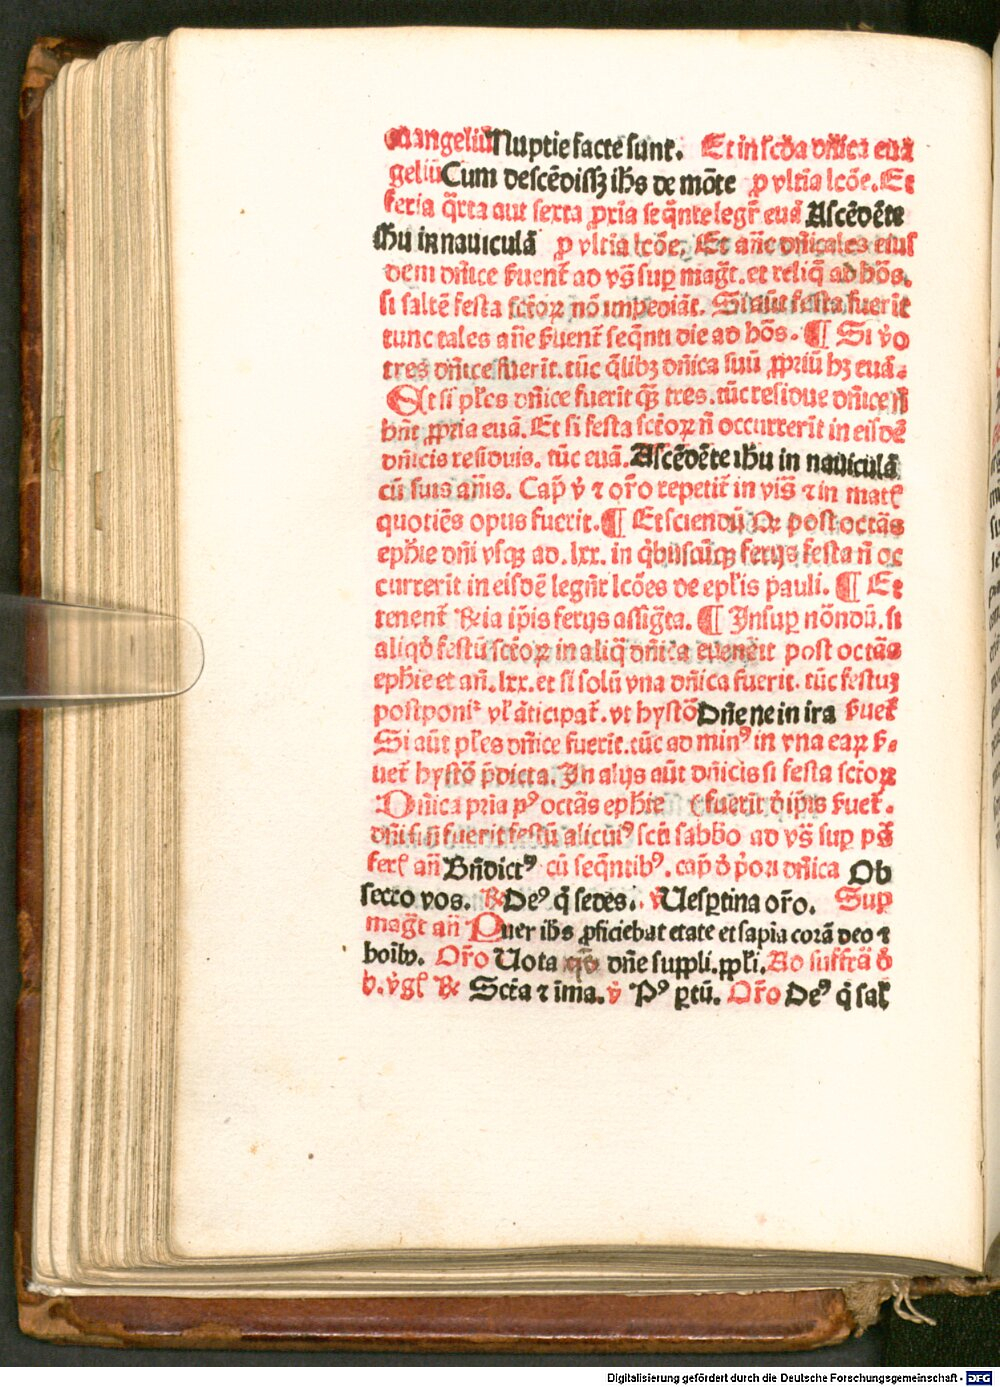 euangeliū Nuptie facte sunt. Et in scd̄a dn̄ica euā
geliū Cum descēdissꝫ ih̄s de mōte ꝑ vltīa lcōe. Et
feria q̄rta aut sexta ꝓpria seq̄nte legr̄ euā Ascēdēte
ih̄u in nauiculā ꝑ vltīa lcōe. Et an̄e dn̄icales eiuſ
dem dn̄ice ẜuent̄ ad vs̄ suꝑ maḡt. et reliq̄ ad hōs.
si saltē festa sctōꝝ nō impediāt. Si aūt festa fuerīt
tunc tales an̄e ẜuent̄ seq̄nti die ad hōs. ¶ Si v̄o
tres dn̄ice fuerīt. tūc q̄libꝫ dn̄ica suū ꝓpriū hꝫ euā.
Et si pl̄es dn̄ice fuerīt qꝫ tres. tūc residue dn̄ice n̄
hn̄t ꝓpria euā. Et si festa sctōꝝ n̄ occurrerīt in eisdē
dn̄icis residuis. tūc euā. Ascēdēte ih̄u in nauiculā
cū suis an̄is. Cap̄ v̄ ⁊ or̄o repetit̄ in vis̄ ⁊ in mat̄
quotiēs opus fuerit. ¶ Et sciendū post octās
eph̄ie dn̄i vsqꝫ ad .lxx. in q̄buscūqꝫ ferijs festa n̄ oc
currerīt in eisdē legn̄t lcōes de epl̄is pauli. ¶ Et
tenent̄ ℟ia ip̄is ferijs assiḡta. ¶ Insuꝑ nōndū. si
aliqd̄ festū sctōꝝ in aliq̄ dn̄ica euenerit post octās
eph̄ie et an̄ .lxx. et si solū vna dn̄ica fuerit. tūc festuꝫ
postponit᷑ vl̄ āticipat̄. vt hystō Dn̄e ne in ira ẜuet̄
Si aūt pl̄es dn̄ice fuerīt. tūc ad minꝰ in vna eaꝝ ẜ-
uet̄ hystō p̄dicta. In alijs aūt dn̄icis si festa sctōꝝ
Dn̄ica pria pꝰ octās eph̄ie (fuerīt d̄ ip̄is ẜuet̄.
dn̄i si n̄ fuerit festū alicuiꝰ scī sabbō ad vs̄ suꝑ ps̄
ferl̄ an̄ Bn̄dictꝰ cū seq̄ntibꝰ. cap̄ d̄ p̄ori dn̄ica Ob
secro vos. ℟ Deꝰ q̄ sedes. v̄ Uesꝑtina or̄o. Suꝑ
maḡt an̄ Puer ih̄s ꝓficiebat etate et sapīa corā deo ⁊
hoibꝰ. Or̄o Uota q̄s dn̄e suppli. ppl̄i. Ad suffrā d̄
b. v̄gl̄ ℟ Sct̄a ⁊ im̄a. v̄ Pꝰ ꝑtū. Or̄o Deꝰ q̄ sal̄
Digitalisierung gefördert durch die Deutsche Forschungsgemeinschaft - DFG